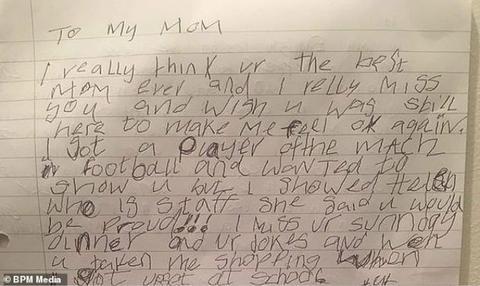 To My Mom
I really think ur the best
Mom ever and I relly Miss
you and wish u was still
here to make me feel ok again.
I got a player ofthe Mach
in football and wanted to
show u but I showed Helen
who is staff she said u would
be proud!!! I miss ur sunday
dinner and ur Jokes and wen
u taken me shopping when
I got upset at school.
BPM Media